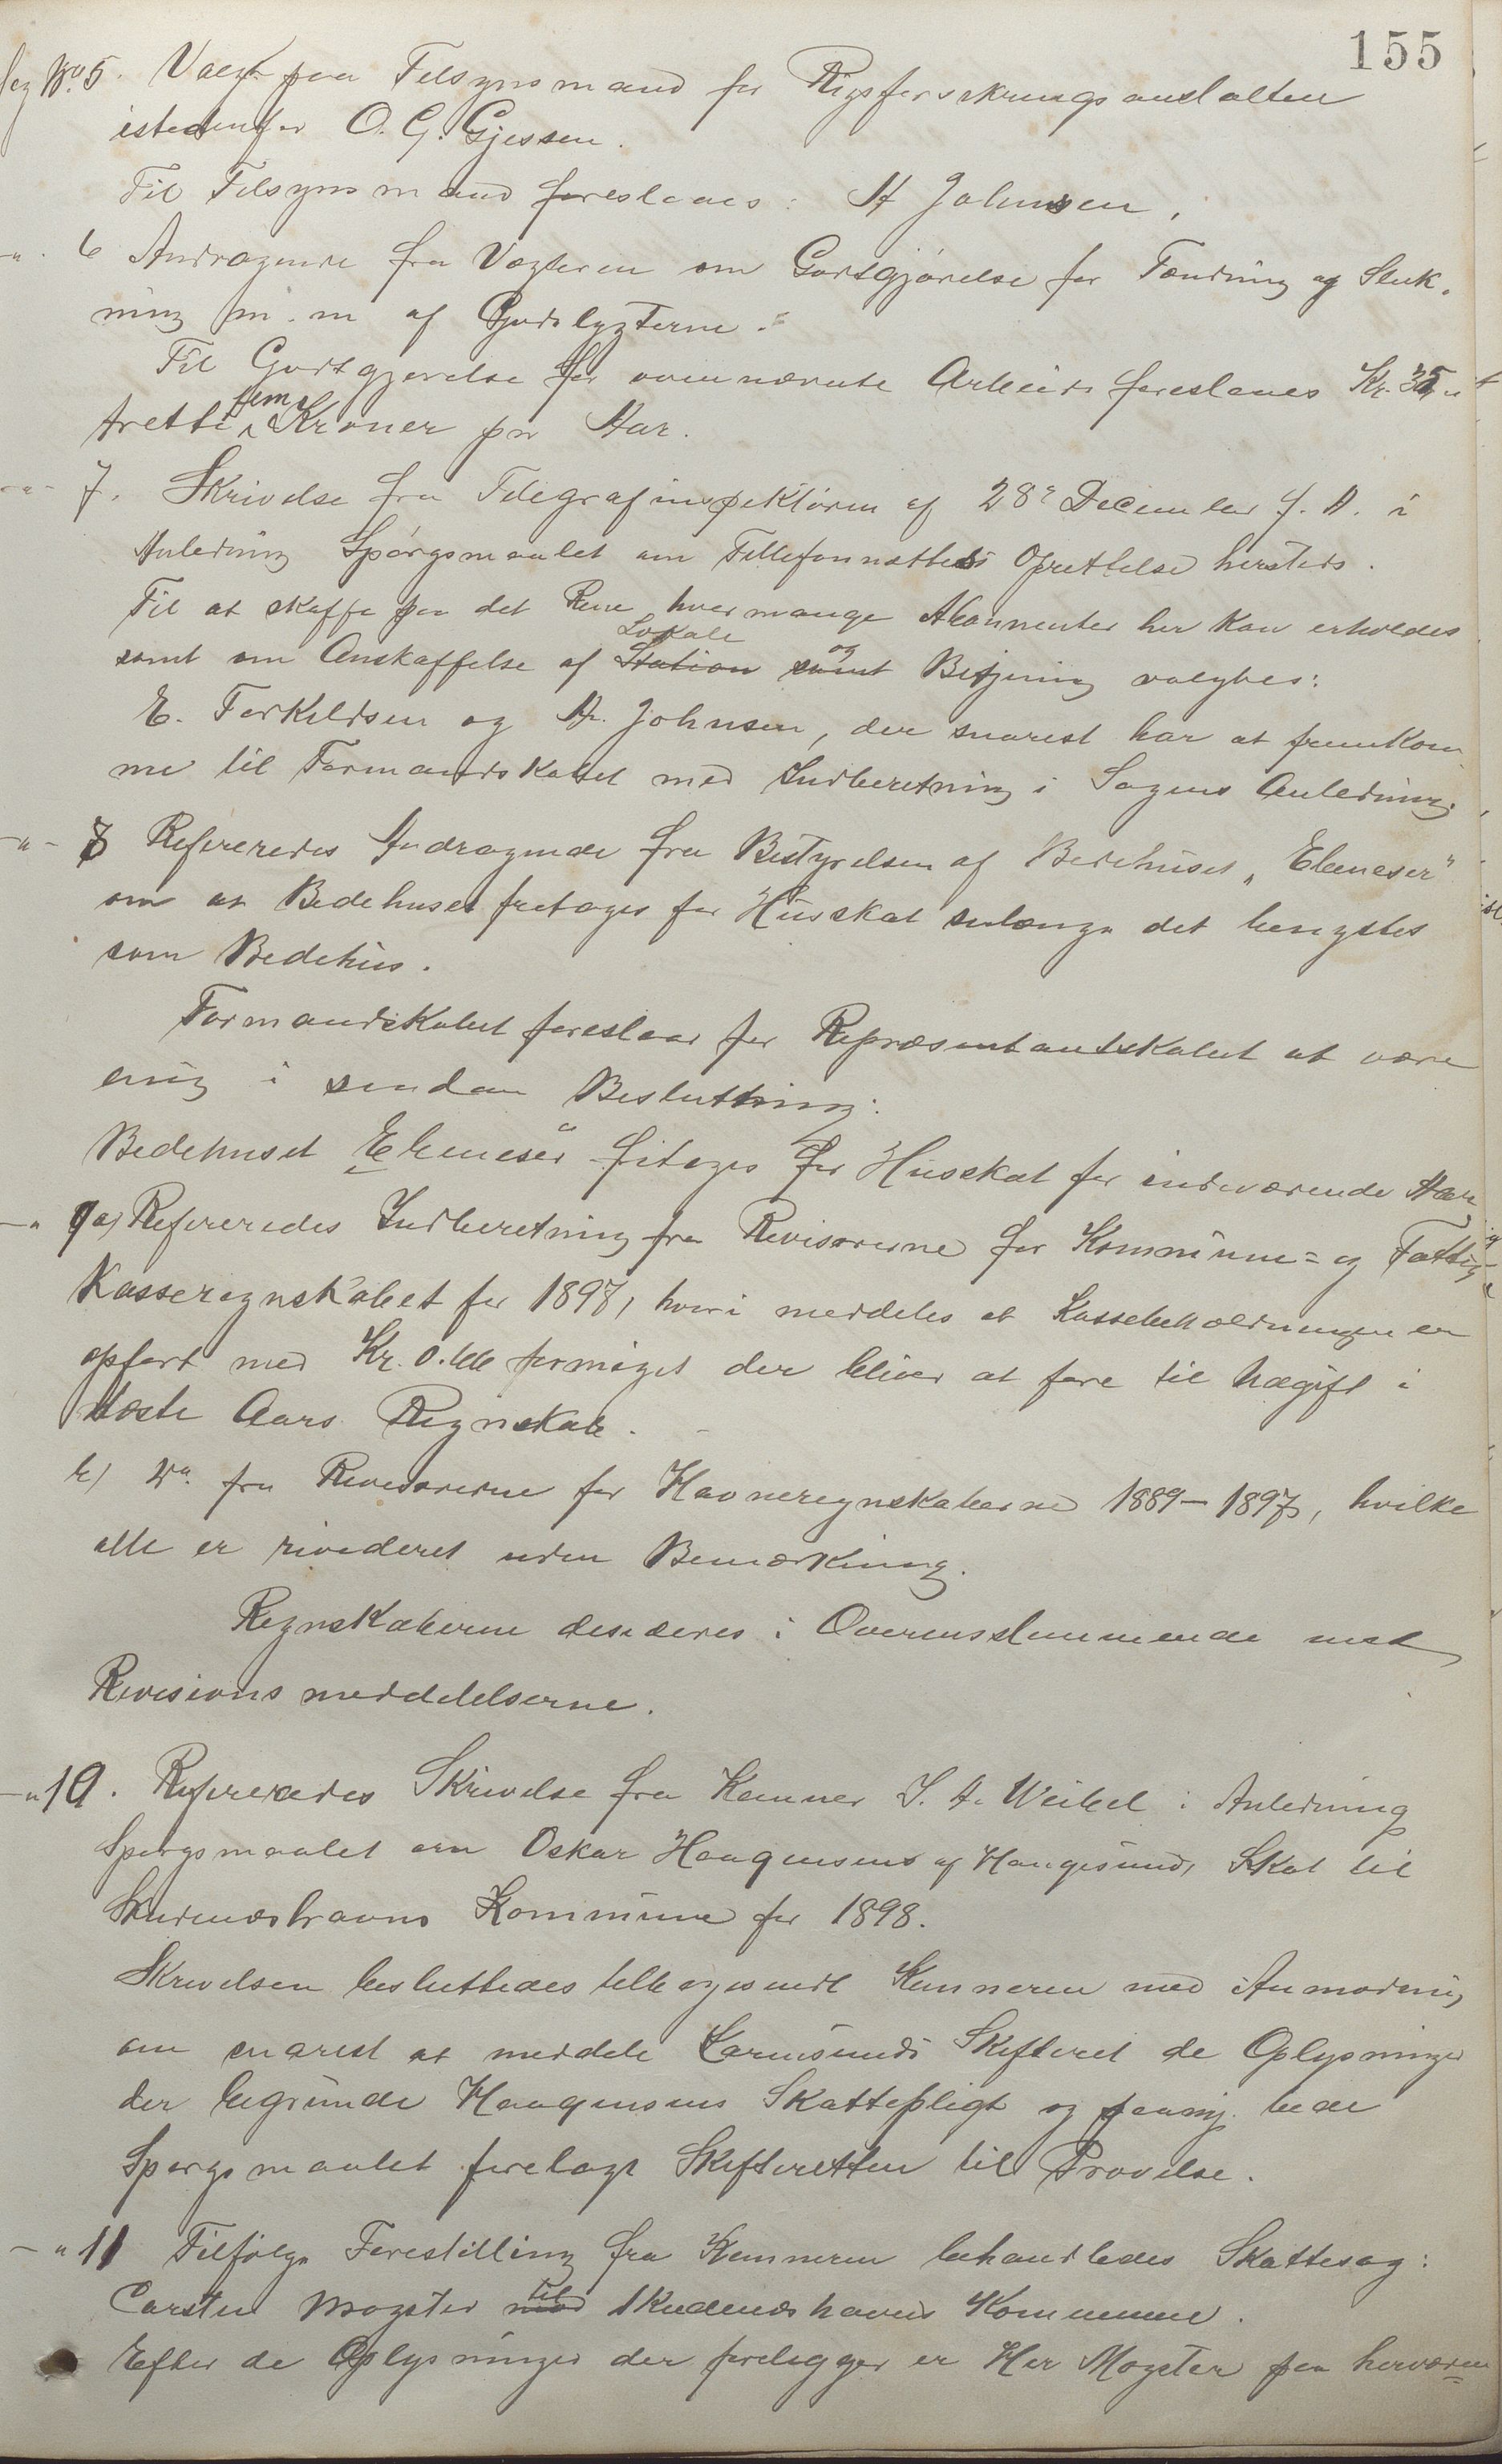 155
Sag No 5. Valgt paa Tilsynsmand for Rigsforsikringsanstalten
istedenfor O. G. Gjessen.
Til Tilsynsmand foreslaaes: A Johnsen,
-"- 6 Andragende fra Vægteren om Godtgjørelse for Tænding og Sluk-
ning m.m af Gadelygterne.
Til Godtgjørelse for ovennævnte Arbeide foreslaaes Kr. 35
tretti fem Kroner pr Aar.
-"- 7. Skrivelse fra Telegrafinspektøren af 28de December f. A. i
Anledning Spørgsmaalet om Tellefonnettets Oprettelse hersteds.
Til at skaffe paa det Rene hvor mange Abonnenter her kan erholdes
samt om Anskaffelse af Station Lokale samt og Betjening valgtes:
E. Torkildsen og A. Johnsen, der snarest har at fremkom-
me til Formandskabet med Indberetning i Sagens Anledning.
-"- 8 Refereredes Andragende fra Bestyrelsen af Bedehuset "Ebeneser"
om at Bedehuset fritages for Husskat saalænge det benyttes
som Bedehus.
Formandskabet foreslaar for Repræsentantskabet at være
enig i saadan Beslutning:
Bedehuset "Ebeneser" fritages for Husskat for indeværende Aar
-"- 9 a) Refereredes Indberetning fra Revisorerne for Kommune= og Fattig
Kasseregnskabet for 1897, hvori meddeles at Kassebeholdningen er
opført med Kr. 0.66 formeget der bliver at føre til Udgift i
Næste Aars Regnskab.
b) Do fra Revisorerne for Havneregnskaberne 1889-1897, hvilke
alle er revideret uden Bemærkning.
Regnskaberne desideres i Overensstemmende med
Revisionsmeddelelserne.
-"- 10. Refereredes Skrivelse fra Kemner S. A. Weibel i Anledning
Spørgsmaalet om Oskar Haagensens af Haugesund, Skat til
Skudenæshavns Kommune for 1898.
Skrivelsen besluttedes tilbagesendt Kemneren med Anmodning
om snarest at meddele Karmsunds Skifteret de Oplysninger
der begrunde Haagensens Skattepligt og bede
Spørgsmaalet forelagt Skifteretten til Prøvelse.
-"- 11 Tilfølge Forestilling fra Kemneren behandledes Skattesag:
Carsten Mogster mod til Skudenæshavns Kommune.
Efter de Oplysninger der foreligger er Her Mogster paa herværen=